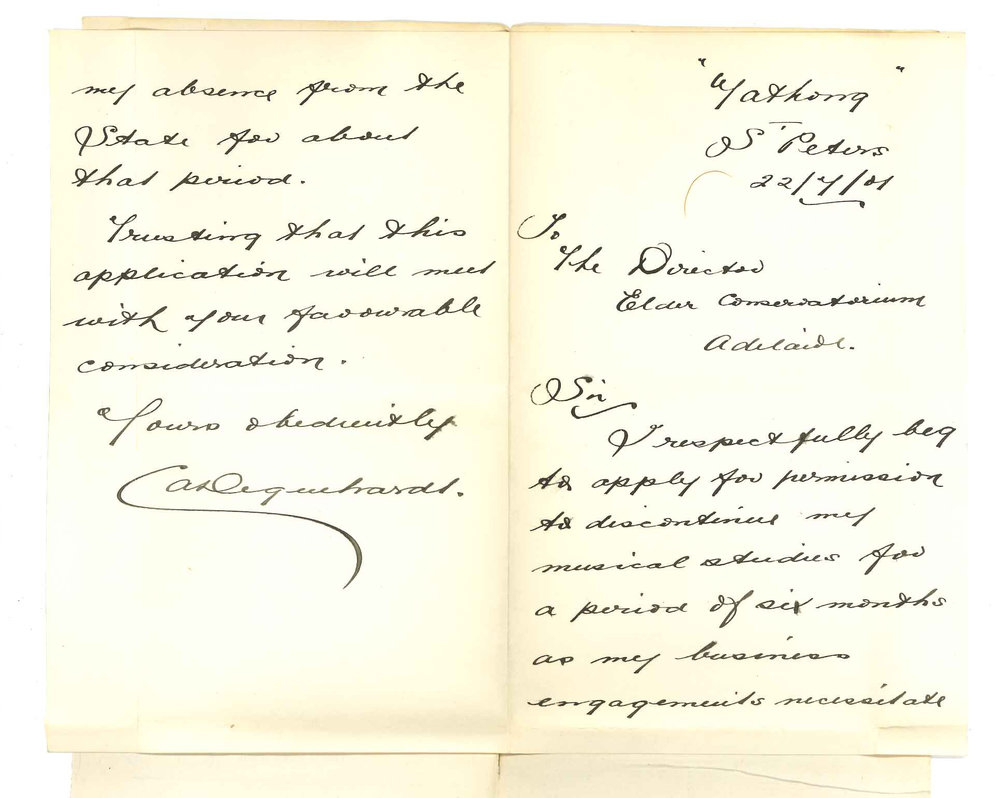 "Yathong"
St Peters
22/7/01
To
The Director
Elder Conservatorium
Adelaide.
Sir
I respectfully beg
to apply for permission
to discontinue my
musical studies for
a period of six months
as my business
engagements necessitate
my absence from the
State for about
that period.
Trusting that this
application will meet
with your favourable
consideration.
Yours obediently